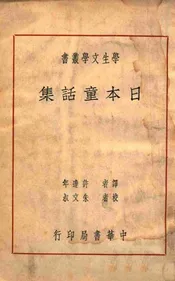 學生文學叢書
日本童話集
譯者 許達年
校者 朱文叔
中華書局印行